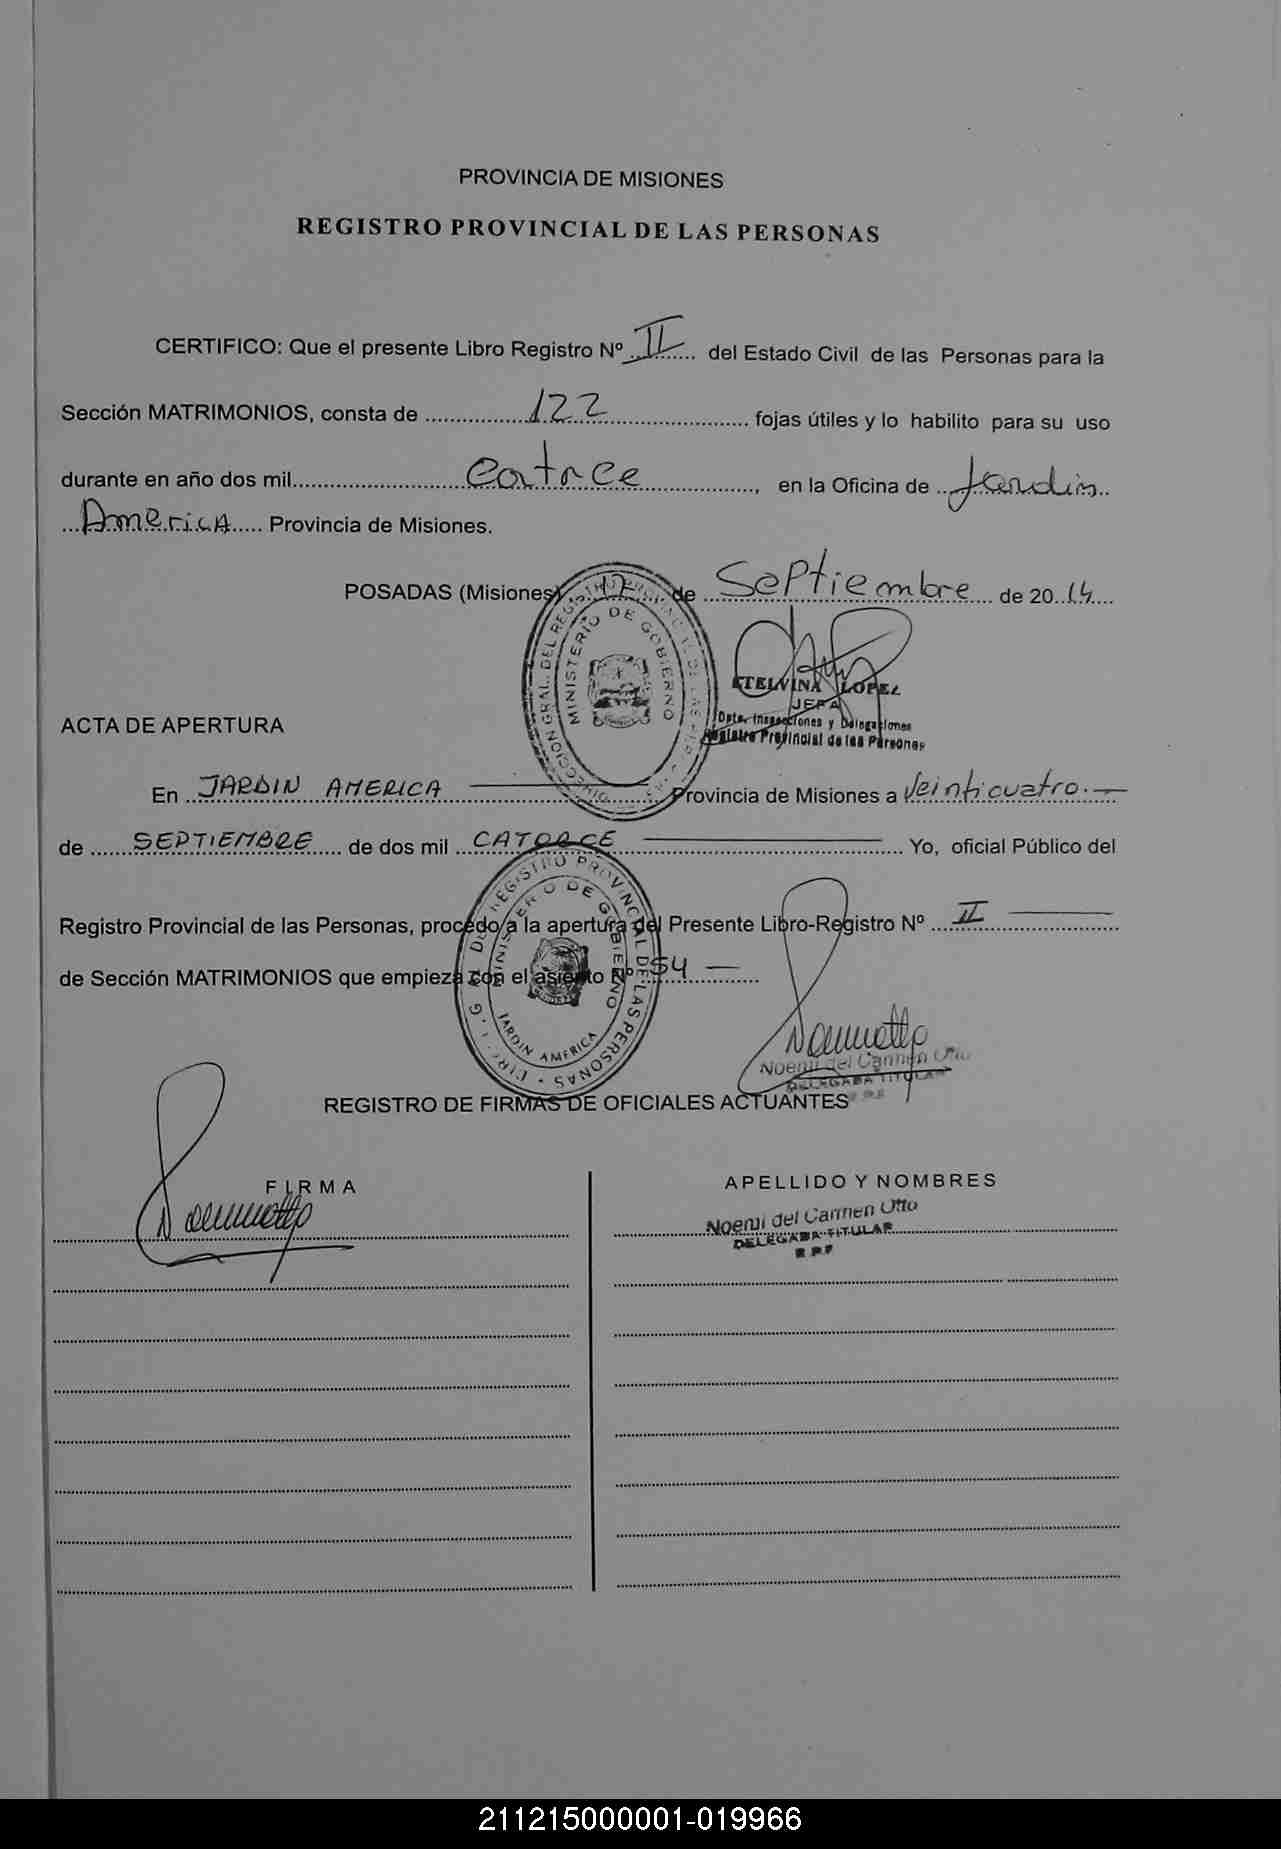 PROVINCIA DE MISIONES
REGISTRO PROVINCIAL DE LAS PERSONAS
CERTIFICO: Que el presente Libro Registro Nº II del Estado Civil de las Personas para la
Sección MATRIMONIOS, consta de 122 fojas útiles y lo habilito para su uso
durante en año dos mil catorce, en la Oficina de Jardin
America Provincia de Misiones.
POSADAS (Misiones) 17 de Septiembre de 2014
DIRECCION GRAL. DEL REGISTRO PROVINCIAL DE LAS PERSONAS
MINISTERIO DE GOBIERNO
ETELVINA LOPEZ
JEFA
Dpto. Inspecciones y Delegaciones
Registro Provincial de las Personas
ACTA DE APERTURA
En JARDIN AMERICA Provincia de Misiones a Veinticuatro.
de SEPTIEMBRE de dos mil CATORCE Yo, oficial Público del
Registro Provincial de las Personas, procedo a la apertura del Presente Libro-Registro Nº II
de Sección MATRIMONIOS que empieza con el asiento Nº 54
REGISTRO PROVINCIAL DE LAS PERSONAS
MINISTERIO DE GOBIERNO
JARDIN AMERICA
Noemi del Carmen Otto
DELEGADA TITULAR
REGISTRO DE FIRMAS DE OFICIALES ACTUANTES
FIRMA
APELLIDO Y NOMBRES
Noemi del Carmen Otto
DELEGADA TITULAR
211215000001-019966